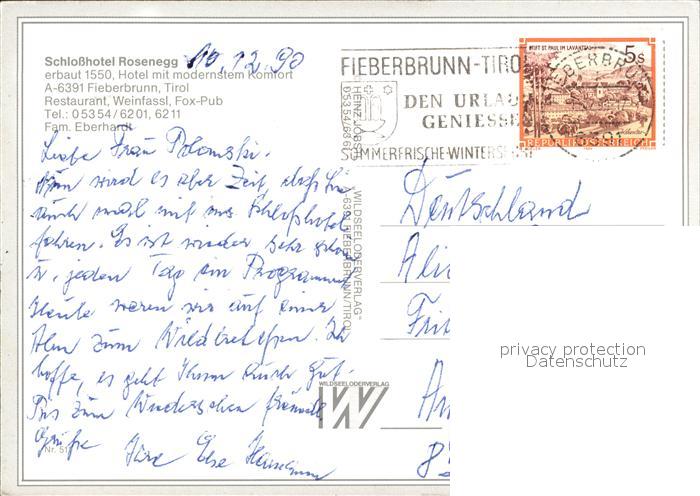 Schloßhotel Rosenegg
erbaut 1550, Hotel mit modernstem Komfort
A-6391 Fieberbrunn, Tirol
Restaurant, Weinfassl, Fox-Pub
Tel.: 0 53 54 / 62 01, 62 11
Fam. Eberhardt
10.12.90
Liebe Frau Polomski.
Nun wird es aber Zeit, daß Sie
auch mal mit ins Schloßhotel
fahren. Es ist wieder sehr schön
u. jeden Tag ein Programm
Heute waren wir auf einer
Alm zum Wildfüttern. Ich
hoffe, es geht Ihnen auch gut.
Bis zum Wiedersehen
Grüße Ihre Else
Nr. 51
FIEBERBRUNN-TIROL
DEN URLAUB
GENIESSEN
SOMMERFRISCHE-WINTERSPORT
STIFT ST. PAUL IM LAVANTTAL
5s
REPUBLIK ÖSTERREICH
FIEBERBRUNN
6391
HEINZ JOBST
"WILDSEELODERVERLAG"
6391 FIEBERBRUNN/TIROL
WILDSEELODERVERLAG
W
Deutschland
privacy protection
Datenschutz